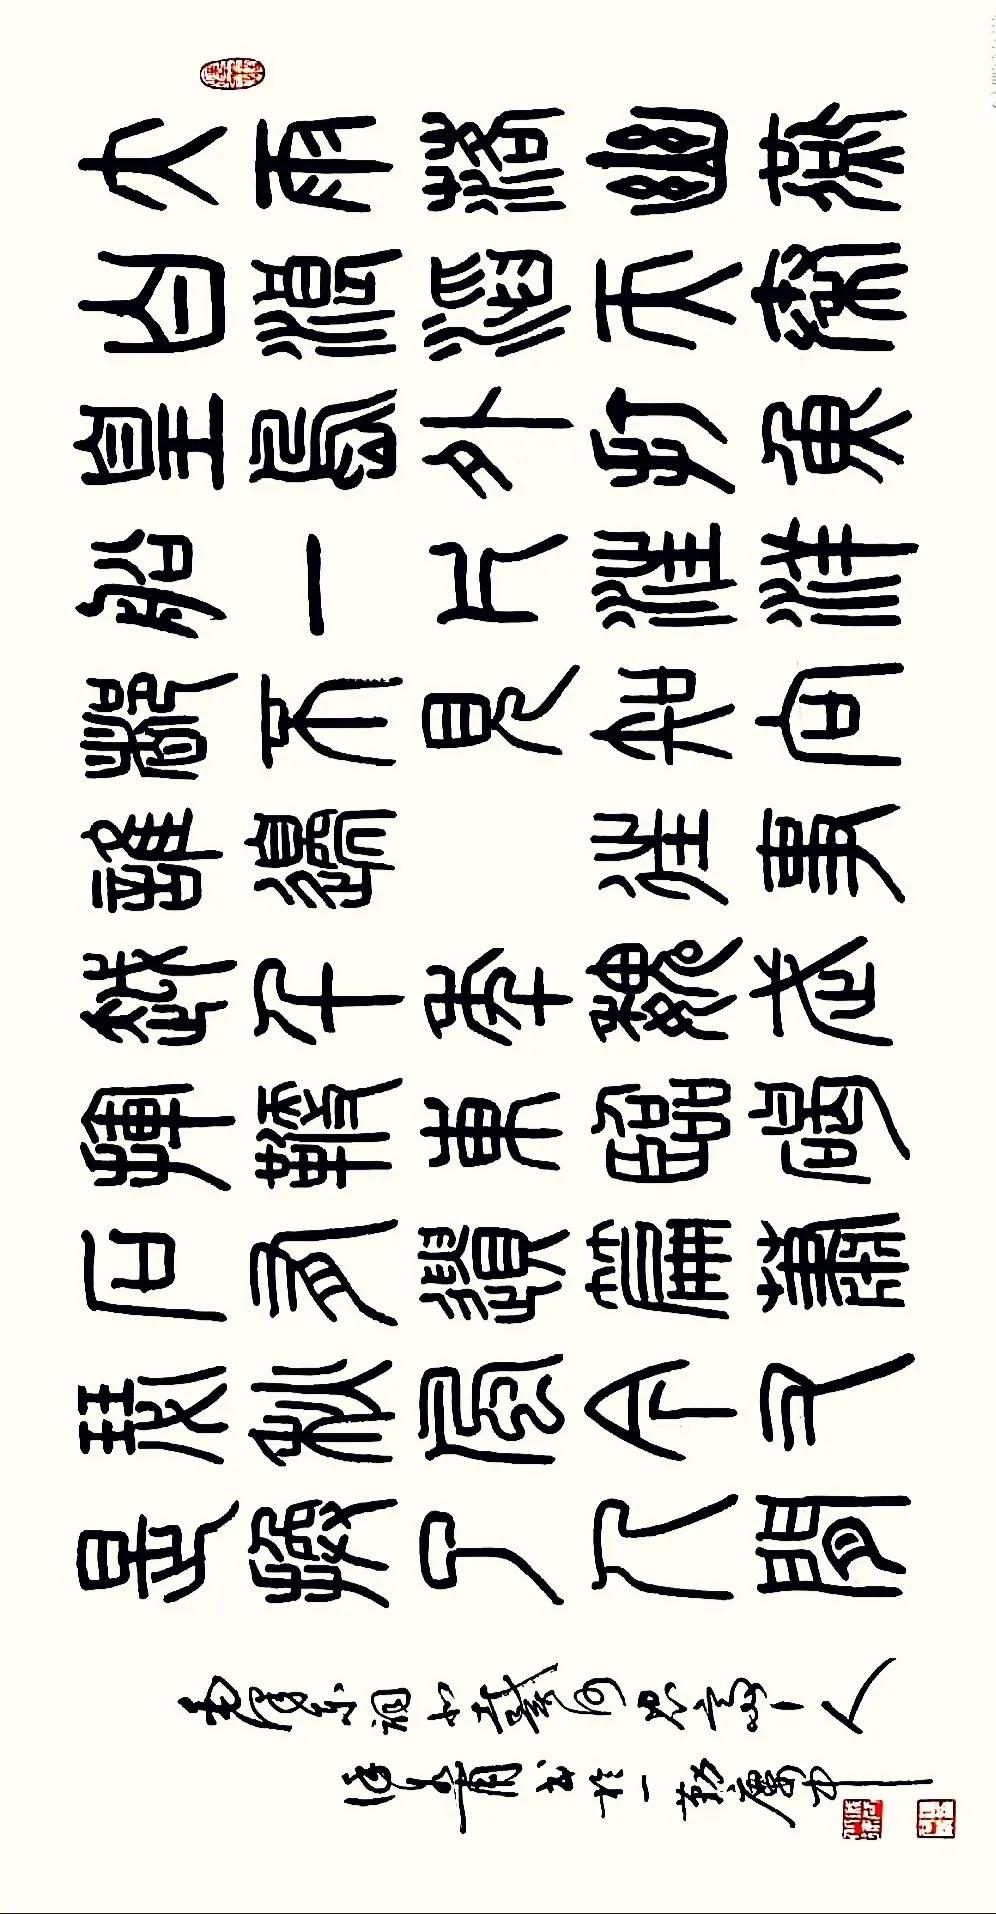 大雨落幽燕
白浪滔天秦
皇島外打魚
船一片汪洋
都不見知向
誰邊 往事
越千年魏武
揮鞭東臨碣
石有遺篇蕭
瑟秋風今又
是換了人間